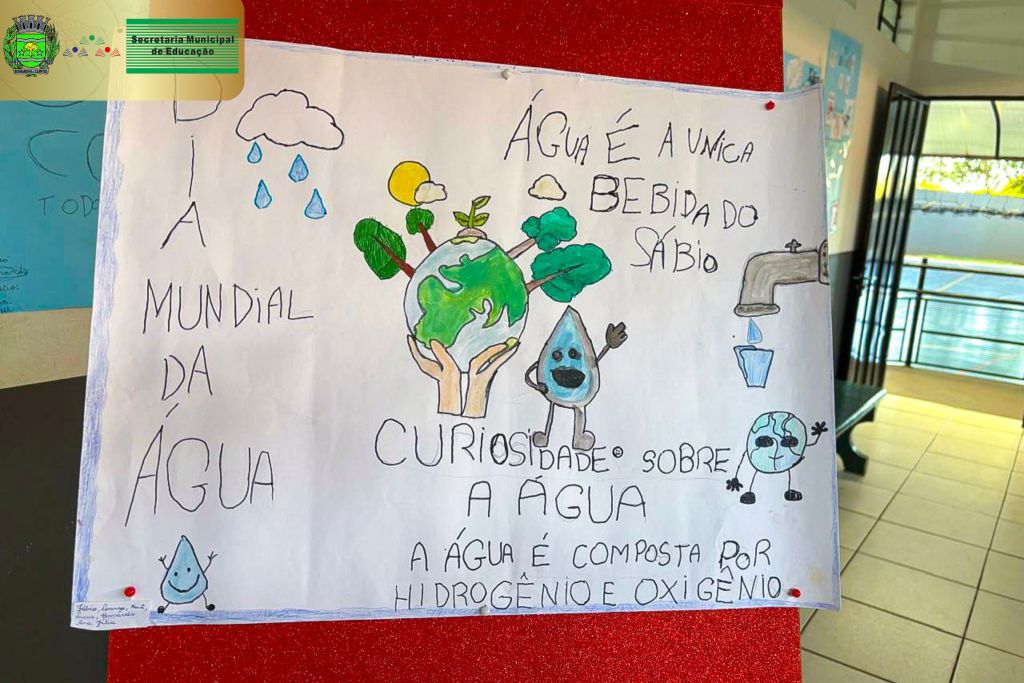 Secretaria Municipal
de Educação
DiA
MUNDiAL
DA
ÁGUA
ÁGUA É A UNICA
BEBIDA DO
SÁBIO
CURIOSIDADE SOBRE
A ÁGUA
A ÁGUA É COMPOSTA POR
HIDROGÊNIO E OXIGÊNIO
Fábio,
Lucas,
Ana Júlia
CO
TODO